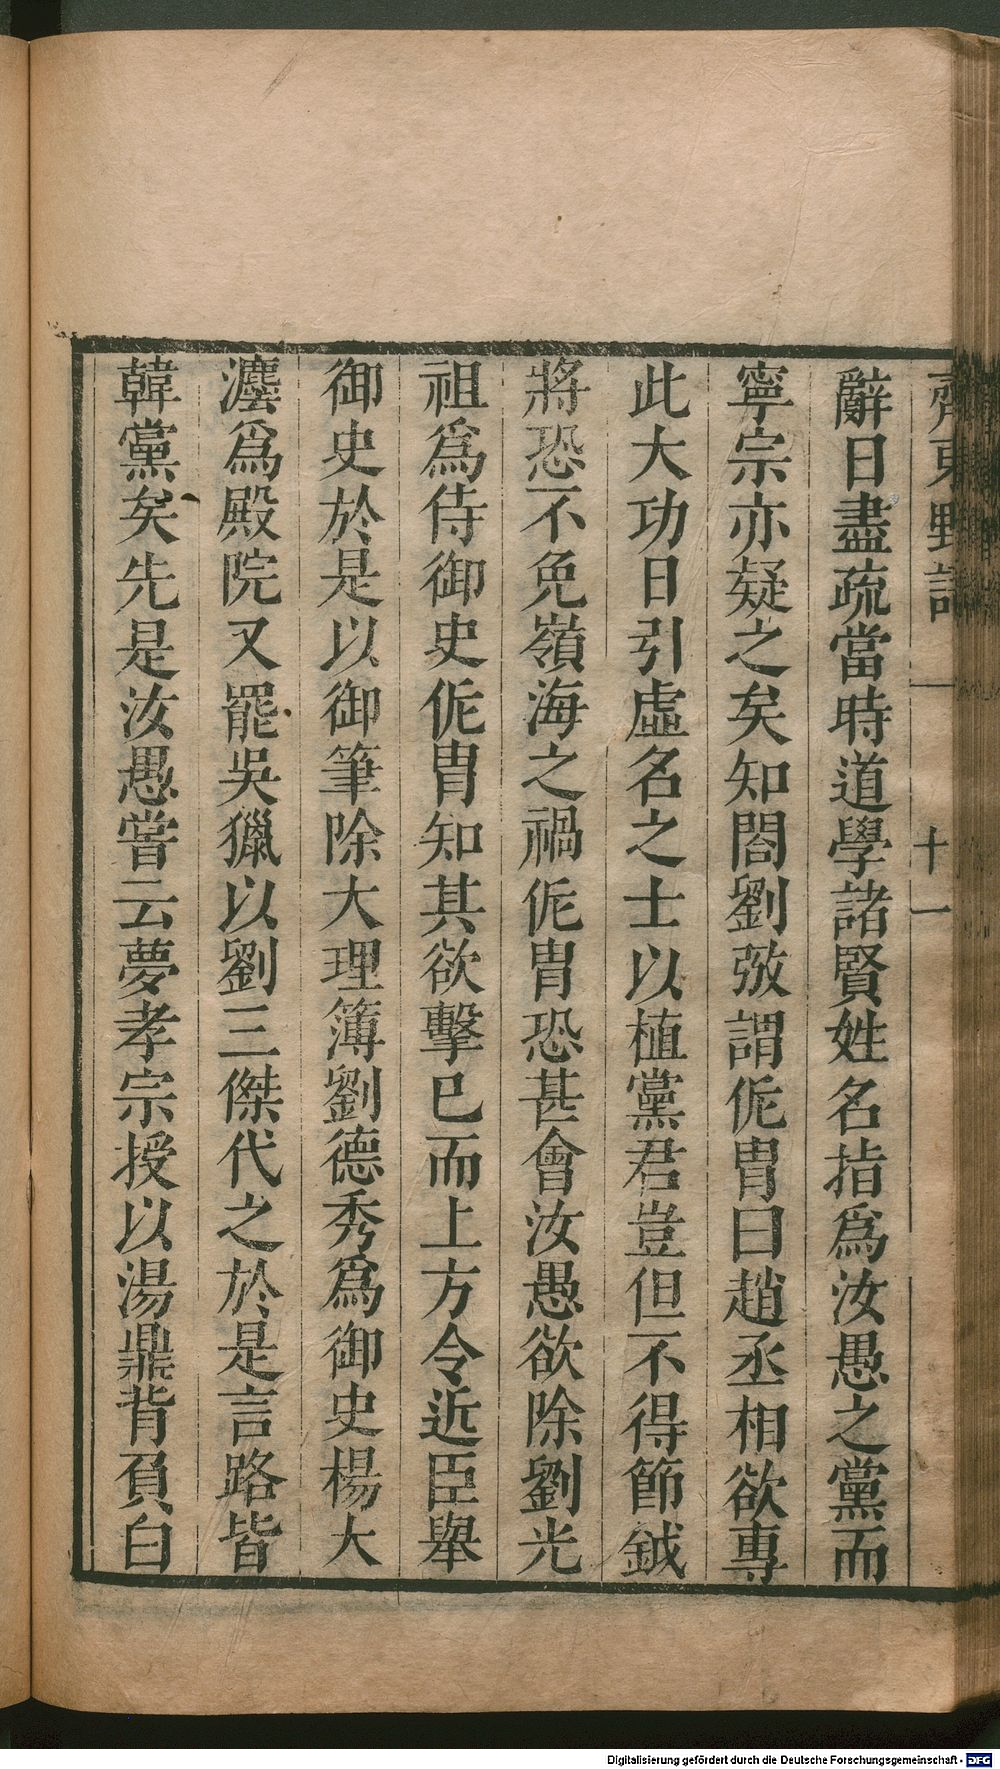 齊東野語 一 十一
辭日盡疏當時道學諸賢姓名指爲汝愚之黨而
寧宗亦疑之矣知閤劉弢謂侂胄曰趙丞相欲專
此大功日引虛名之士以植黨君豈但不得節鉞
將恐不免嶺海之禍侂胄恐甚會汝愚欲除劉光
祖爲侍御史侂胄知其欲擊已而上方令近臣舉
御史於是以御筆除大理簿劉德秀爲御史楊大
灋爲殿院又罷吳獵以劉三傑代之於是言路皆
韓黨矣先是汝愚嘗云夢孝宗授以湯鼎背負白
Digitalisierung gefördert durch die Deutsche Forschungsgemeinschaft - DFG